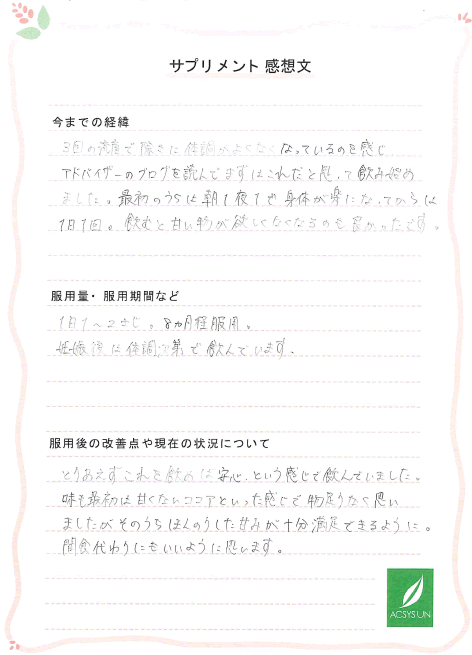 サプリメント 感想文
今までの経緯
3回の流産で除々に体調がよくなくなっているのを感じ
アドバイザーのブログを読んでまずはこれだと思って飲み始め
ました。最初のうちは朝1夜1で身体が楽になってからは
1日1回。飲むと甘い物が欲しくなくなるのも良かったです。
服用量・服用期間など
1日1〜2さじ。8ヵ月程服用。
妊娠後は体調次第で飲んでいます.
服用後の改善点や現在の状況について
とりあえずこれを飲めば安心.という感じで飲んでいました。
味も最初は甘くないココアといった感じで物足りなく思い
ましたがそのうちほんのりした甘みが十分満足できるように。
間食代わりにもいいように思います。
ACSYSUN